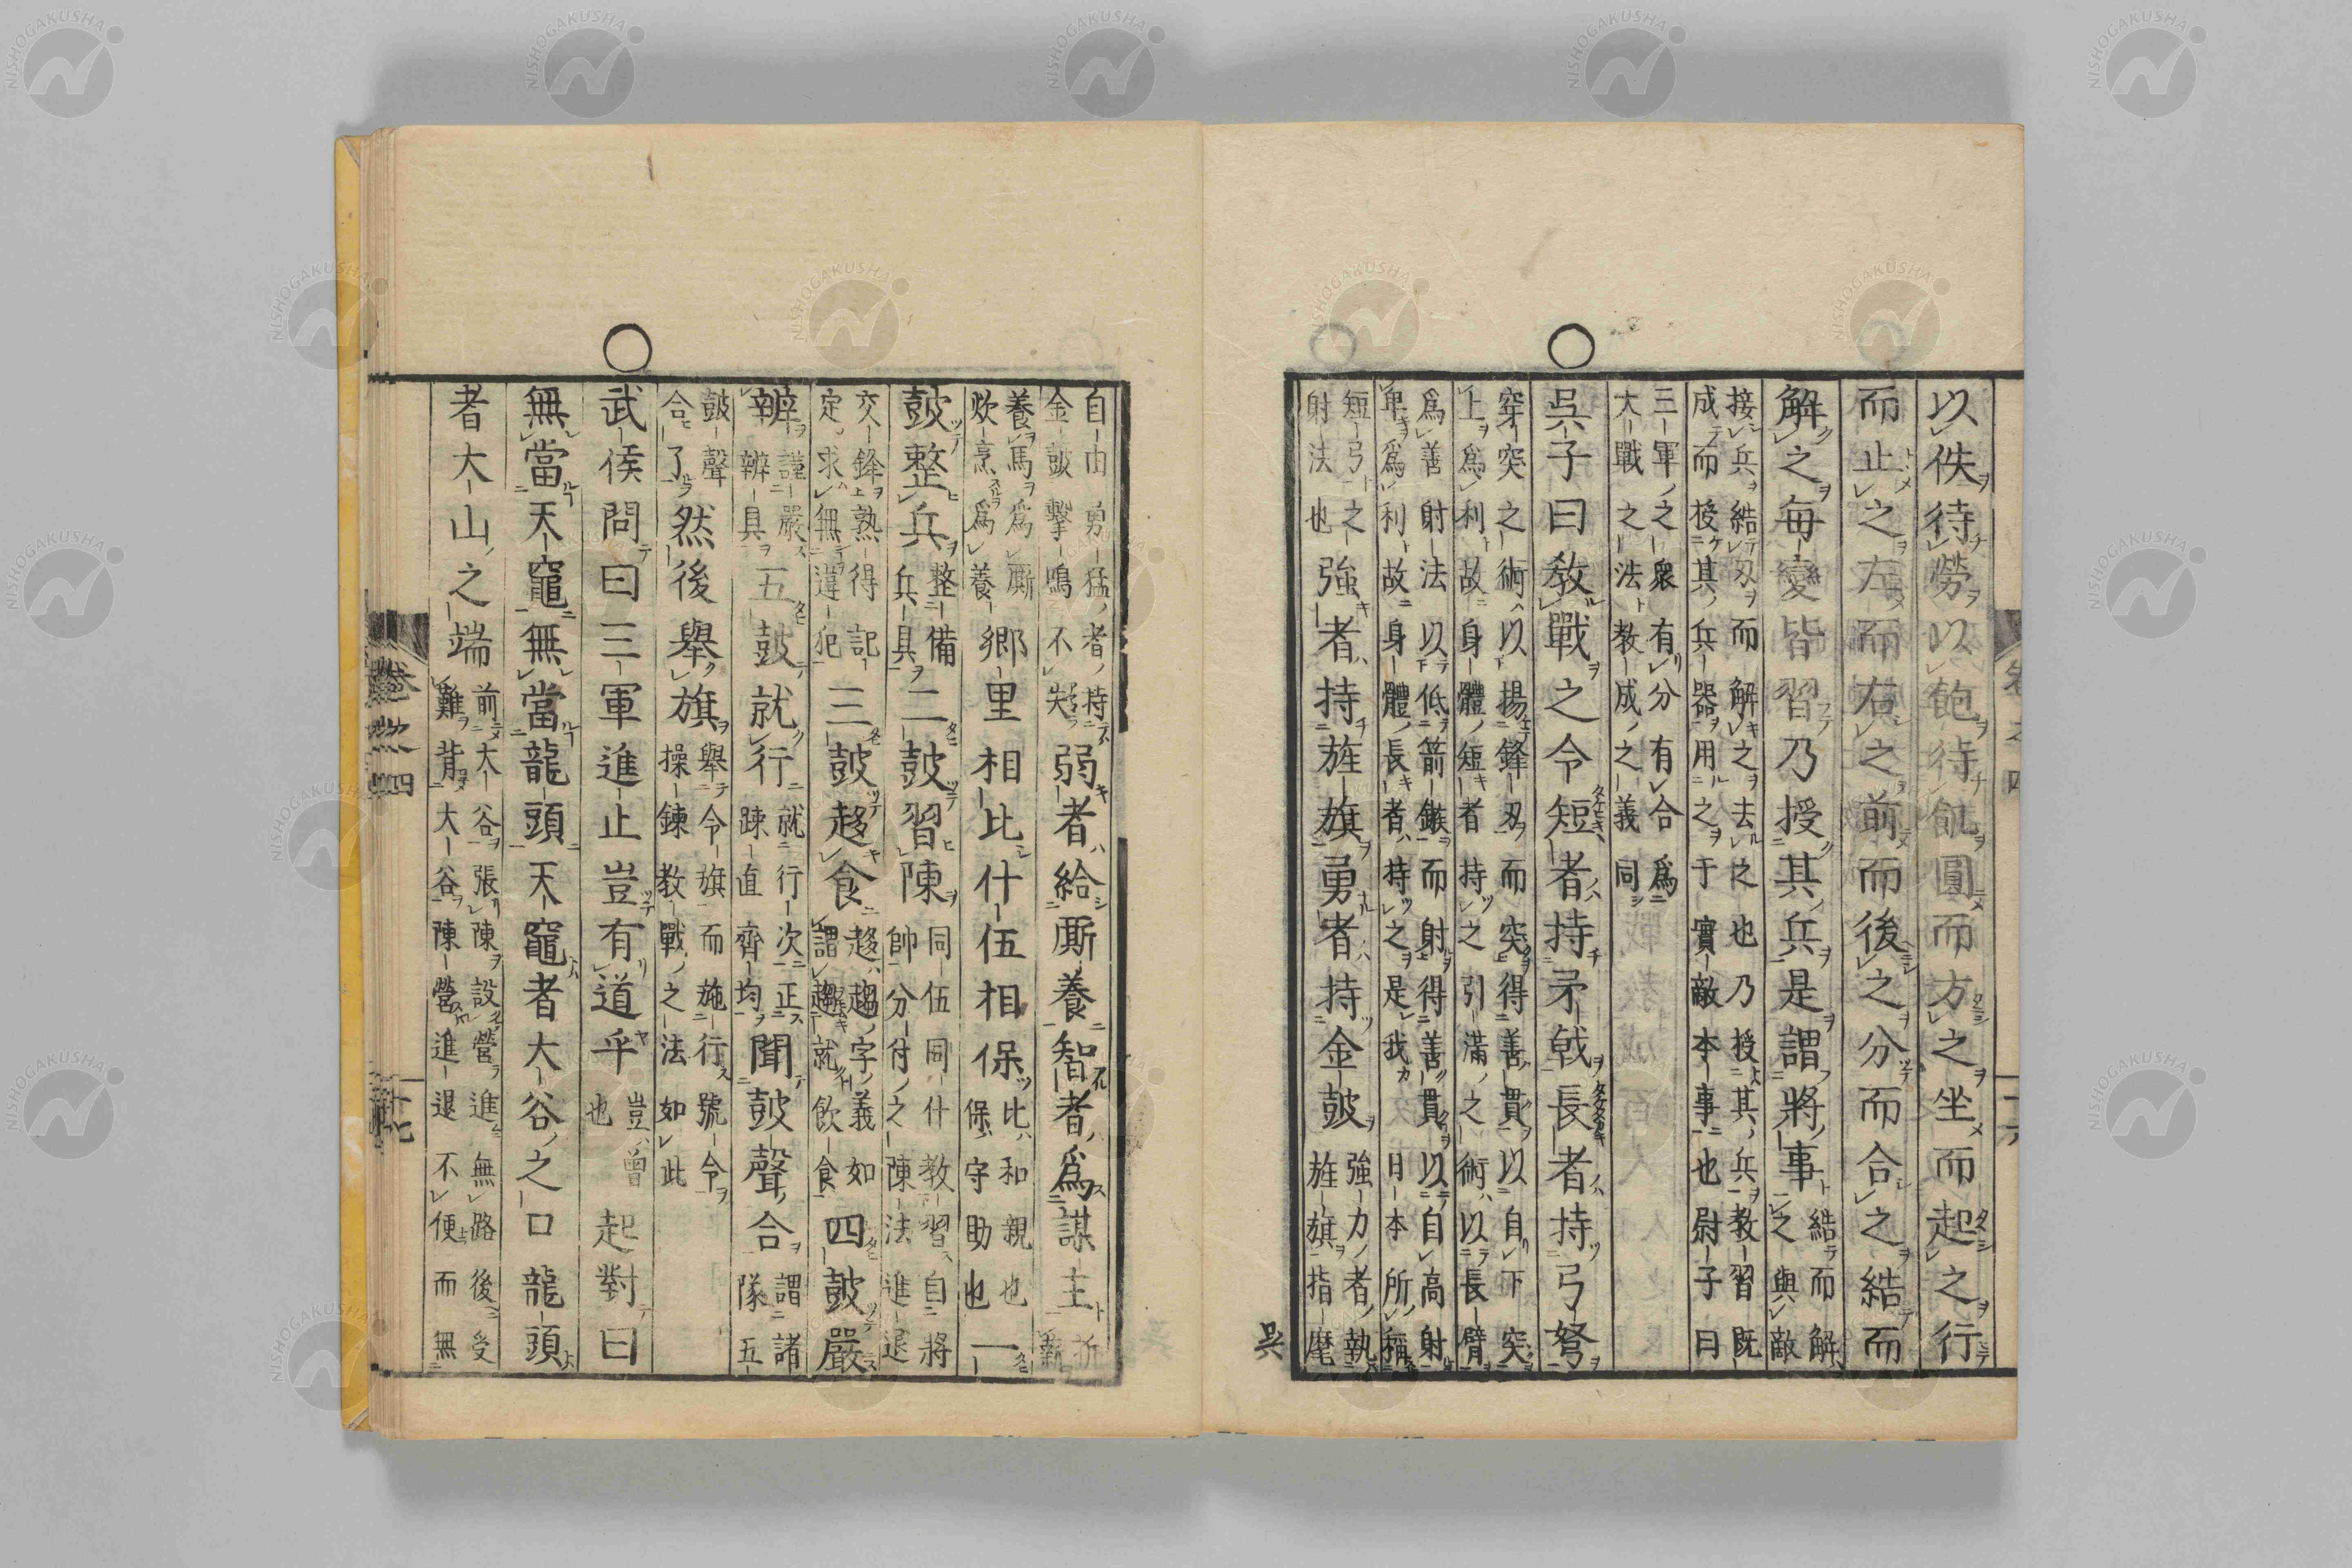 以佚待勞以飽待飢圓而方之坐而起之行
而止之左而右之前而後之分而合之結而
解之每變皆習乃授其兵是謂將事
結而解
之與敵
接兵結刃而解之去之也乃授其兵教習既
成而授其兵器用之于實敵本事也尉子曰
三軍之衆有分有合爲
大戰之法教成之義同
吳子曰教戰之令短者持矛戟長者持弓弩
穿突之術以揚鋒刃而突得善貫以自下突
上爲利故身體短者持之引滿之術以長臂
爲善射法以低箭鏃而射得善貫以自高射
卑爲利故身體長者持之是我日本所稱
短弓之
射法也
強者持旌旗勇者持金鼓
強力者執
旌旗指麾
吳
卷之四
十六
自由勇猛者持
金鼓擊鳴不失
弱者給厮養智者爲謀主
折
薪
養馬爲厮
炊烹爲養
郷里相比什伍相保
比和親也
保守助也
一
鼓整兵
整備
兵具
二鼓習陳
同伍同什教習自將
帥分付之陳法進退
交鋒熟得記
定求無違犯
三鼓趍食
趍趨字義如
謂趨就飲食
四鼓嚴
辨
謹嚴
辨具
五鼓就行
就行次正
踈直齊均
聞鼓聲合
謂諸
隊五
鼓聲
合了
然後舉旗
舉令旗而施行號令
操鍊教戰之法如此
武侯問曰三軍進止豈有道乎
豈曾
也
起對曰
無當天竈無當龍頭天竈者大谷之口龍頭
者大山之端
前大谷張陳設營進無路後受
難背大谷陳營進退不便而無
卷之四
十七
NISHOGAKUSHA